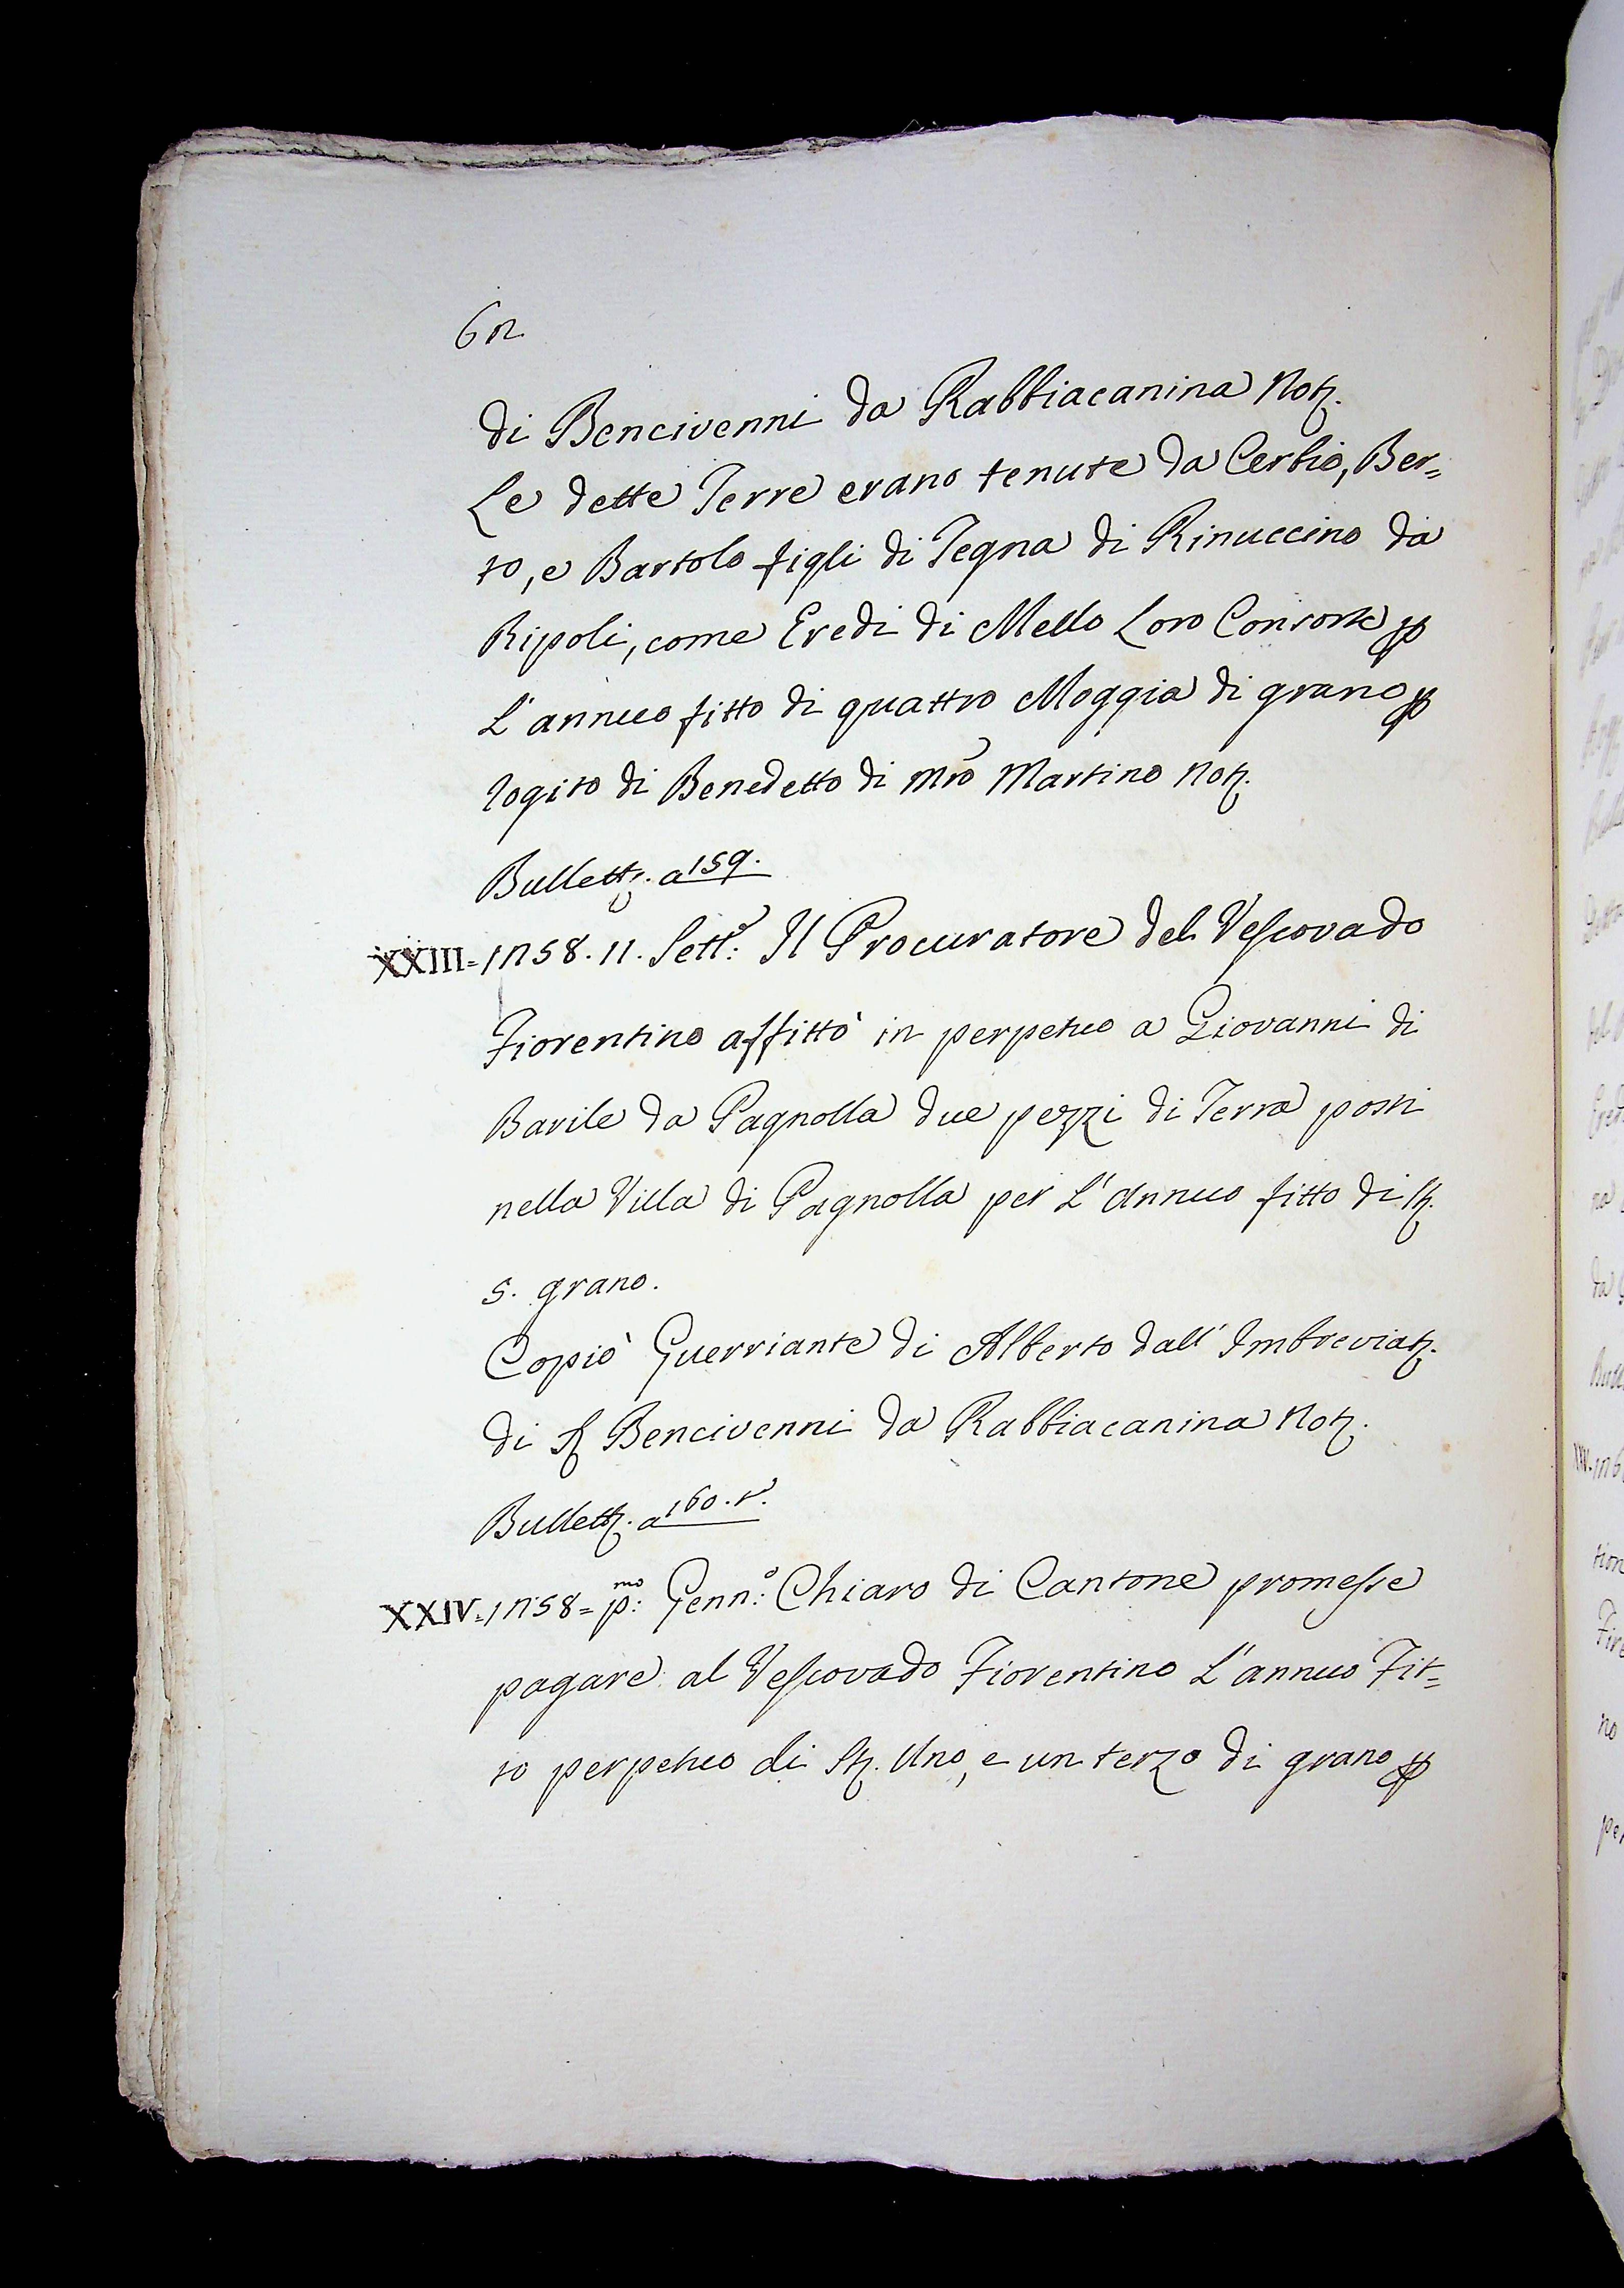 62
di Bencivenni da Rabbiacanina Not.
Le dette Terre erano tenute da Cerbio, Ber=
to, e Bartolo figli di Tegna di Rinuccino da
Ripoli, come Eredi di Mello Loro Consorte p
L'annuo fitto di quattro Moggia di grano p
rogito di Benedetto di Mro Martino Not.
Bullett. a 159.
XXIII = 1258. 11. Sett.e Il Procuratore del Vescovado
Fiorentino affittò in perpetuo a Giovanni di
Barile da Pagnolla due pezzi di Terra posti
nella Villa di Pagnolla per L'Annuo fitto di St.
5. grano.
Copiò Guerriante di Alberto dall' Imbreviat.
di S Bencivenni da Rabbiacanina Not.
Bullett. a 160. t.
XXIV = 1258 = p:mo Genn:o Chiaro di Cantone promesse
pagare al Vescovado Fiorentino L'annuo Fit=
to perpetuo di St. Uno, e un terzo di grano p